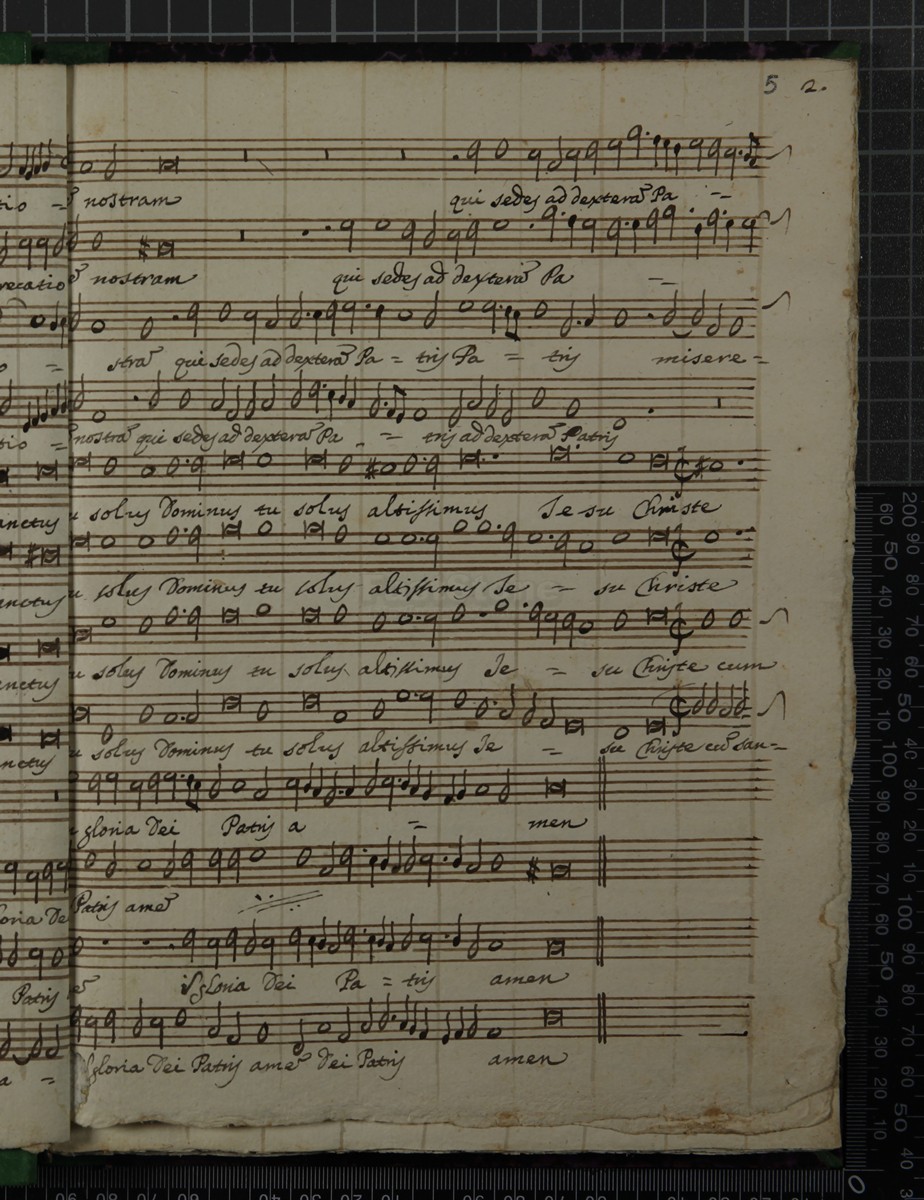 5 2.
tio = nostram qui sedes ad dexterā Pa =
recatiō nostram qui sedes ad dexterā Pa =
= strā qui sedes ad dexterā Pa = tris Pa = tris misere =
tio = nostrā qui sedes ad dexterā Pa = tris ad dexterā Patris
anctus u solus Dominus tu solus altissimus Je su Christe
anctus u solus Dominus tu solus altissimus Je = su Christe
anctus u solus Dominus tu solus altissimus Je = su Christe cum
anctus u solus Dominus tu solus altissimus Je = su Christe cū san =
gloria Dei Patris a = men
oria De Patris amē
Patris gloria Dei Pa = tris amen
a = gloria Dei Patris amē Dei Patris amen
200
90
80
70
60
50
40
30
20
10
100
90
80
70
60
50
40
30
20
10
0